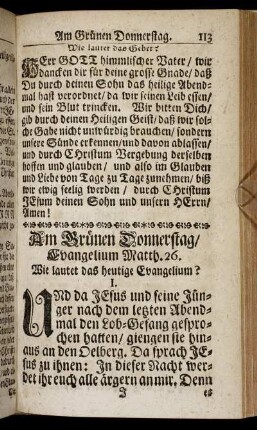 Am Grünen Donnerstag. 113
Wie lautet das Gebet?
HErr GOTT himmlischer Vater / wir
dancken dir für deine grosse Gnade / daß
Du durch deinen Sohn das heilige Abend-
mal hast verordnet / da wir seinen Leib essen /
und sein Blut trincken. Wir bitten Dich /
gib durch deinen Heiligen Geist / daß wir sol-
che Gabe nicht unwürdig brauchen / sondern
unsere Sünde erkennen / und davon ablassen /
und durch Christum Vergebung derselben
hoffen und glauben / und also im Glauben
und Liebe von Tage zu Tage zunehmen / biß
wir ewig seelig werden / durch Christum
JEsum deinen Sohn und unsern HErrn /
Amen!
Am Grünen Donnerstag /
Evangelium Matth. 26.
Wie lautet das heutige Evangelium?
I.
UNd da JEsus und seine Jün-
ger nach dem letzten Abend-
mal den Lob-Gesang gespro-
chen hatten / giengen sie hin-
aus an den Oelberg. Da sprach JE-
sus zu ihnen: In dieser Nacht wer-
det ihr euch alle ärgern an mir. Denn
J es